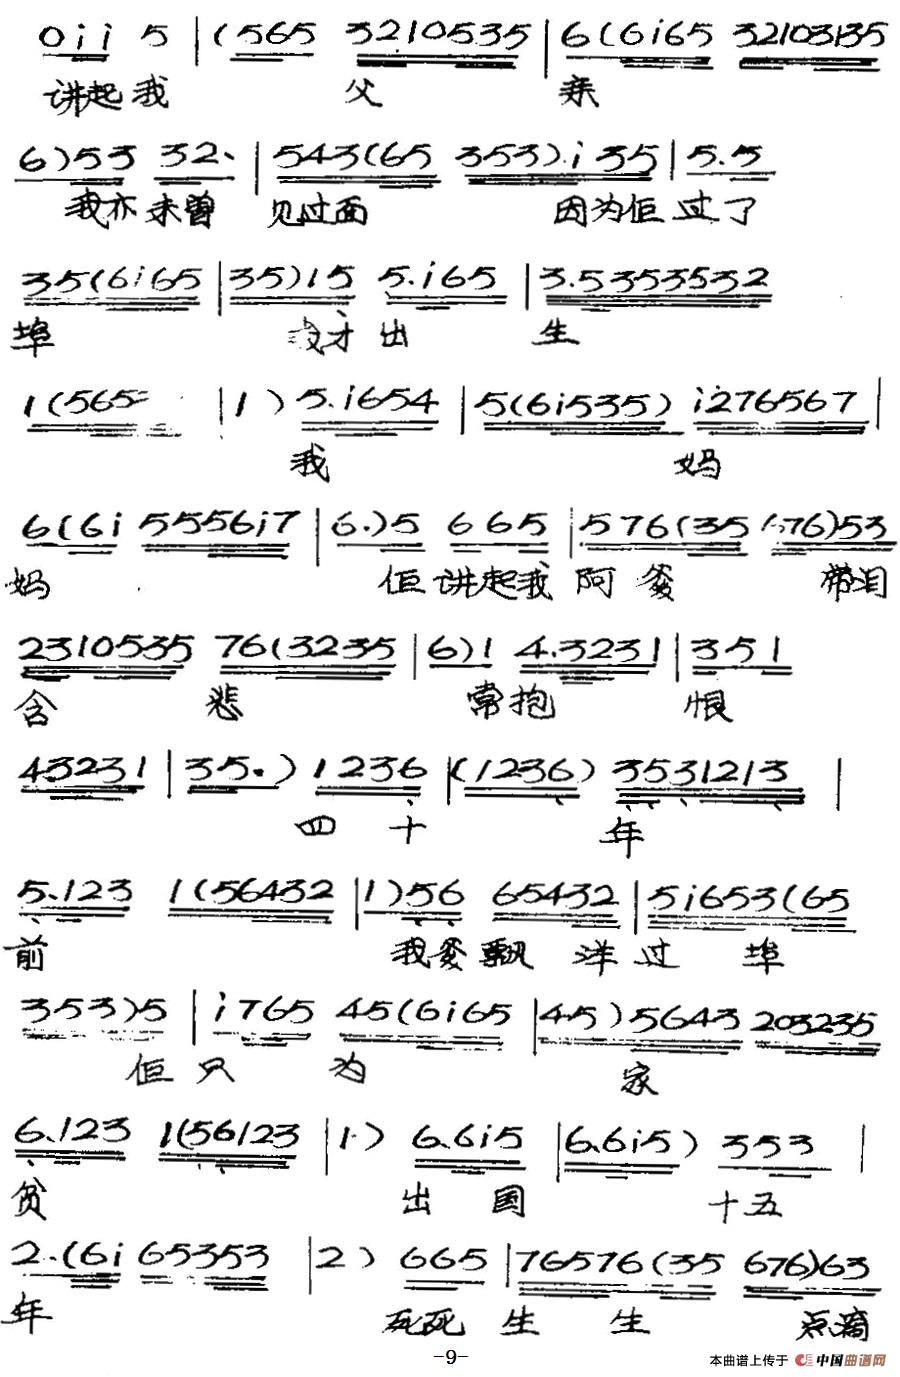 0 i i 5 | (565 3210535 | 6(6i65 32103135
讲起我 父 亲
6)53 32. | 543(65 353).i 35 | 5.3
我亦未曾 见过面 因为佢过了
35(6i65 | 35)15 5.i65 | 3.5353532
埠 我才出 生
1(565 | 1) 5.i654 | 5(6i535) i276567 |
我 妈
6(6i 5556i7 | 6.)5 665 | 576(35 676)53
妈 佢讲起我 阿爹 带泪
2310535 76(3235 | 6)1 4.3231 | 351
含 悲 常抱 恨
43231 | 35.) 1236 | (1236) 3531213 |
四 十 年
5.123 1(56432 | 1)56 65432 | 5i653(65
前 我爹飘 洋过 埠
353)5 | i765 45(6i65 | 45)5643 203235
佢只 为 家
6.123 1(56123 | 1.) 6.6i5 | 6.6i5) 353 |
贫 出 国 十五
2.(6i 65353 | 2) 665 | 76576(35 676)63
年 死死 生 生 点滴
-9-
本曲谱上传于 中国曲谱网